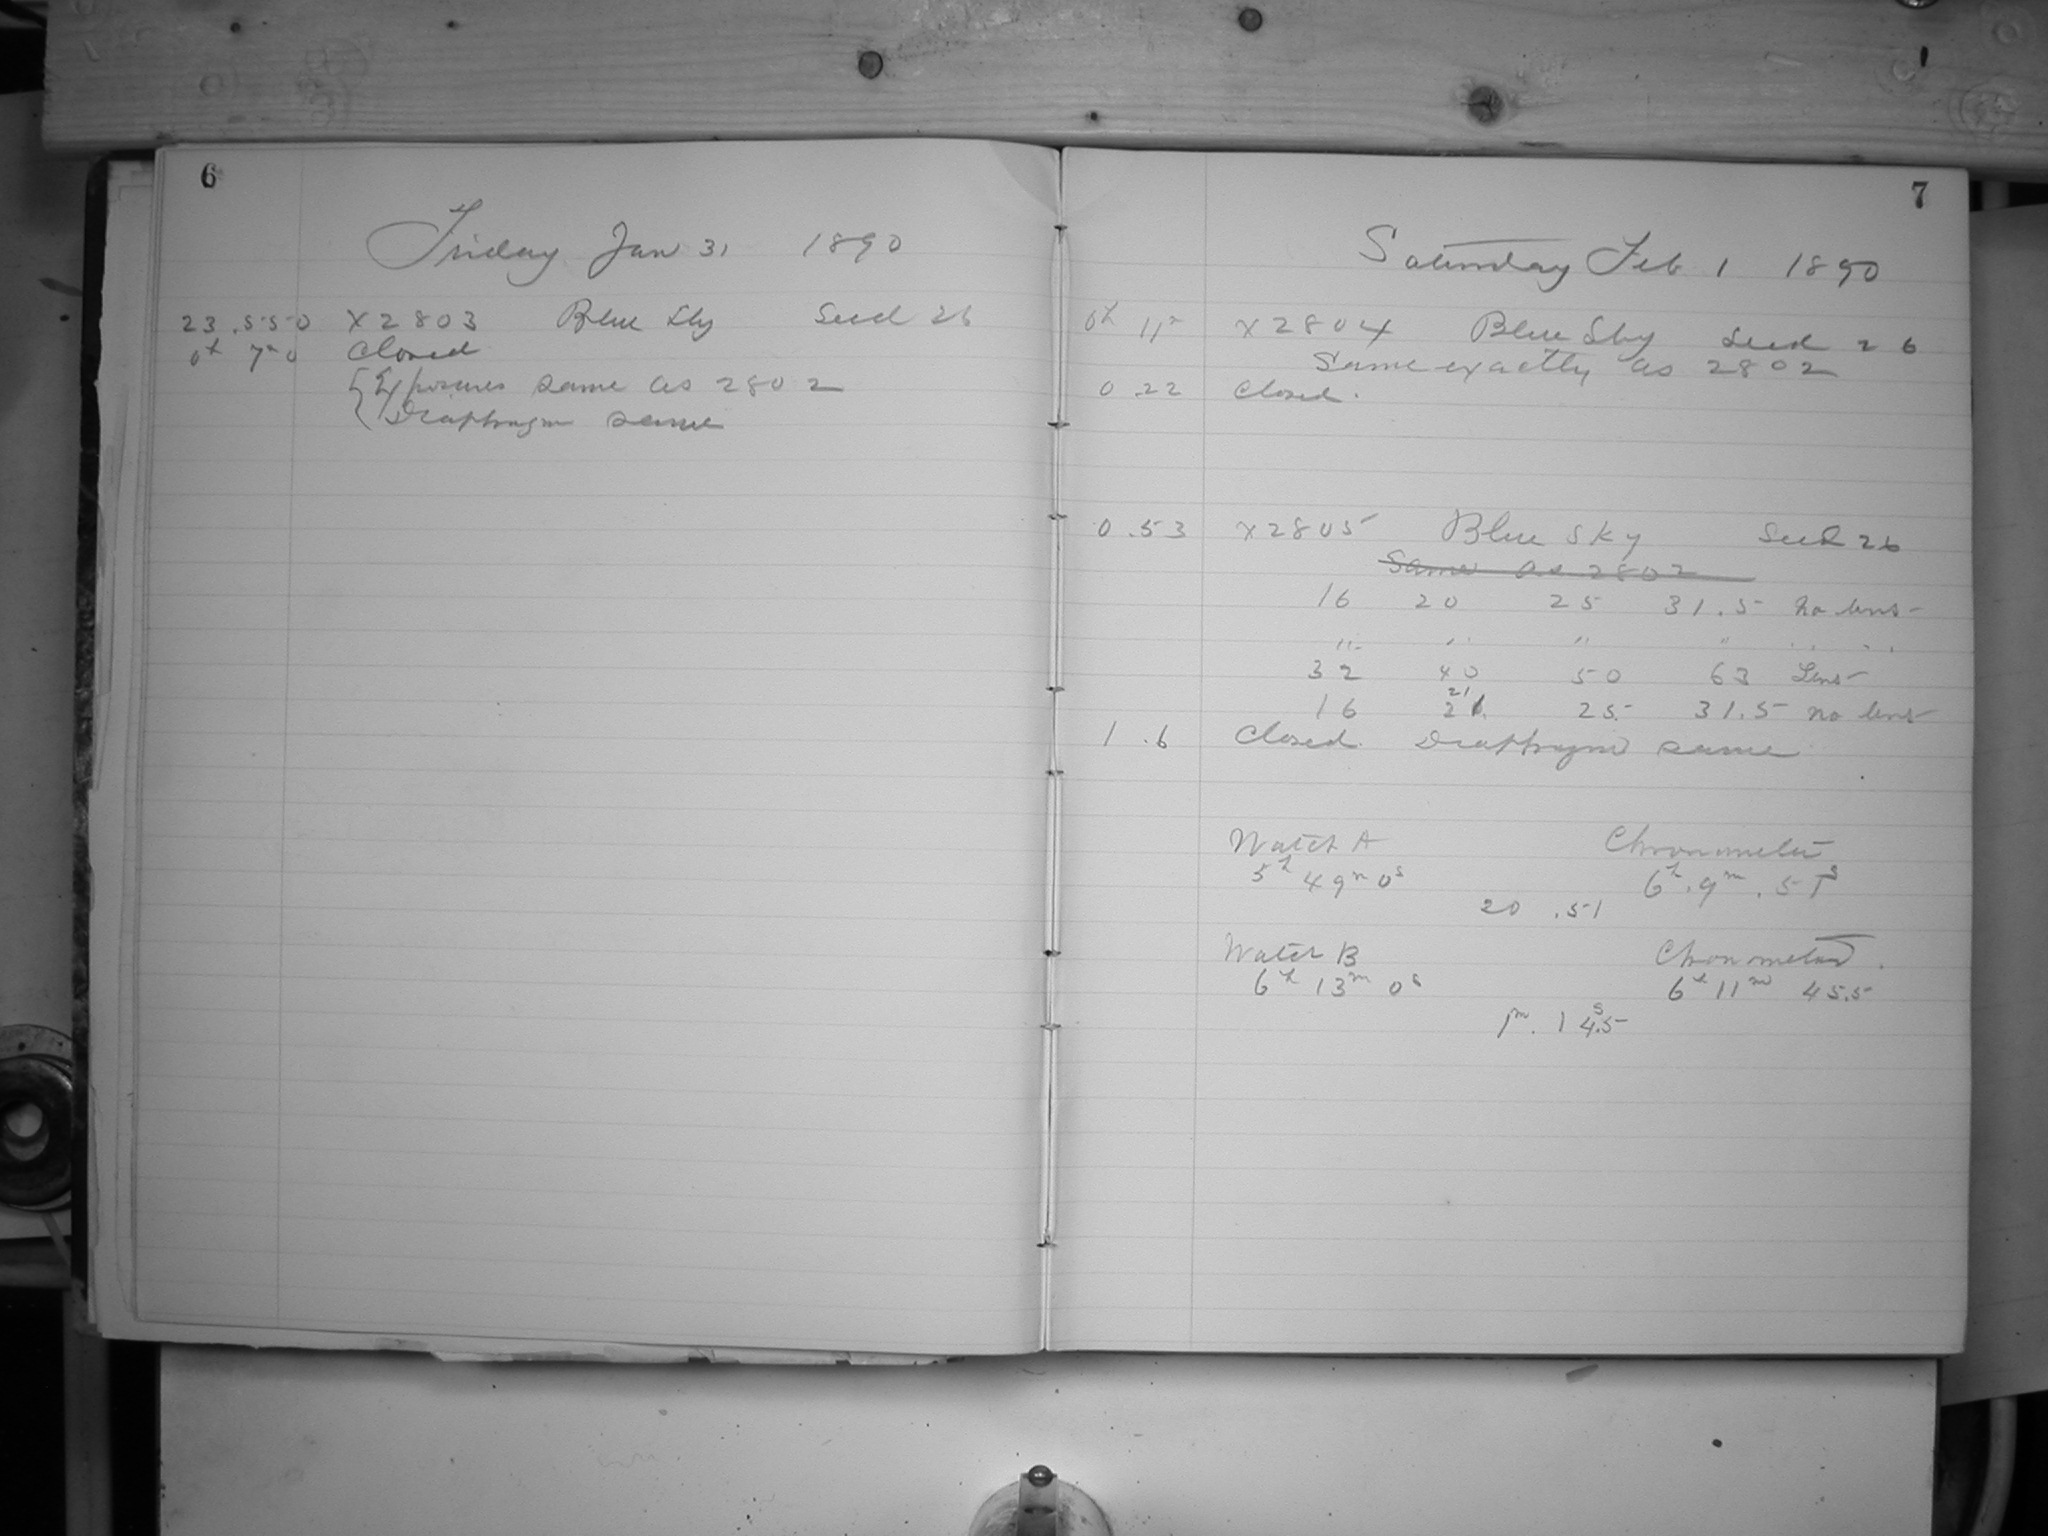 6
Friday Jan 31 1890
23.55.0 X2803 Blue Sky Seed 26
0h 7m 0 Closed
{Exposures same as 2802
{Diaphragm same
7
Saturday Feb 1 1890
0h 11m X2804 Blue Sky Seed 26
Same exactly as 2802
0.22 Closed.
0.53 X2805 Blue Sky Seed 26
Same as 2802
16 20 25 31.5 No lens
" " " " " "
32 40 50 63 Lens
21
16 21. 25. 31.5 no lens
1.6 Closed. Diaphragm same
Watch A Chronometer
5h 49m 0s 6h. 9m. 51s
20 .51
Watch B Chronometer.
6h 13m 0s 6h 11m 45.5
1m. 14s.5